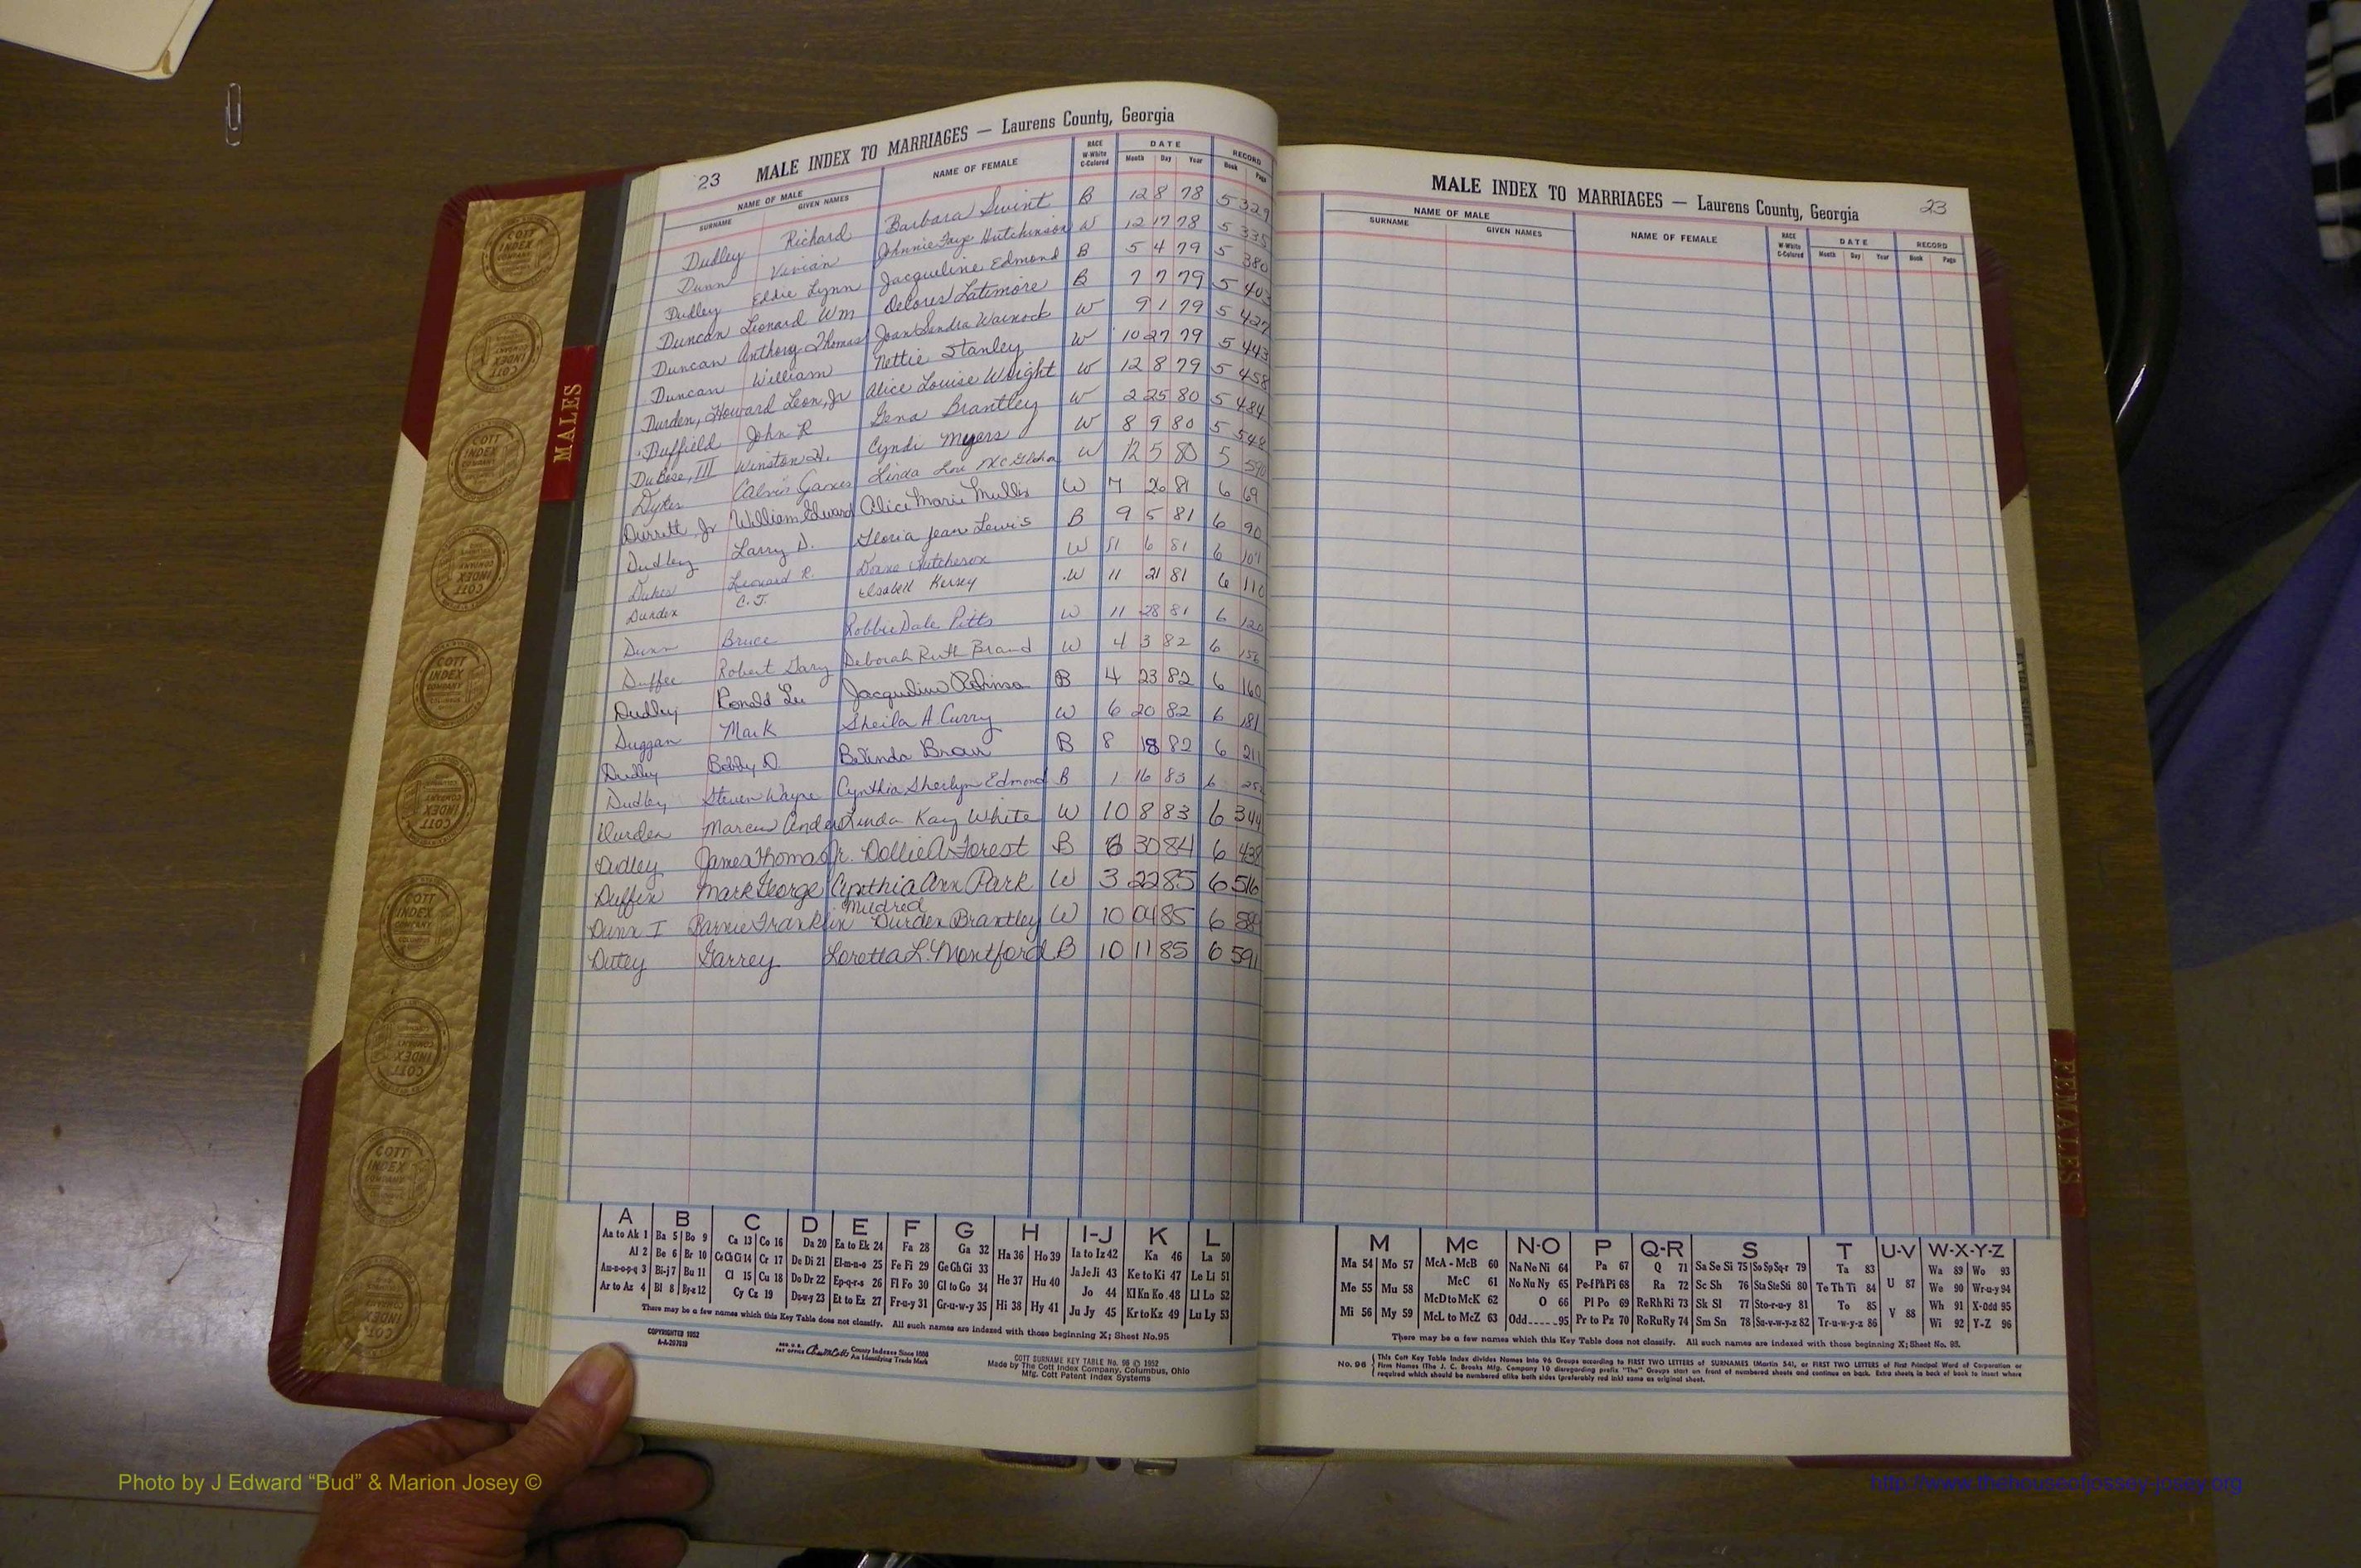 23 MALE INDEX TO MARRIAGES — Laurens County, Georgia
NAME OF MALE NAME OF FEMALE RACE W-White C-Colored DATE RECORD
SURNAME GIVEN NAMES Month Day Year Book Page
Dudley Richard Barbara Swint B 12 8 78 5 329
Dunn Vivian Johnnie Faye Hutchinson W 12 17 78 5 335
Dudley Eddie Lynn Jacqueline Edmond B 5 4 79 5 380
Duncan Leonard Wm Delores Latimore B 7 7 79 5 403
Duncan Anthony Thomas Joan Sandra Warnock W 9 1 79 5 427
Duncan William Nettie Stanley W 10 27 79 5 443
Durden, Howard Leon, Jr Alice Louise Wright W 12 8 79 5 458
Duffield John R Gena Brantley W 2 25 80 5 484
DuBose, III Winston Cyndi Myers W 8 9 80 5 548
Dykes Calvin James Linda W 12 5 80 5 590
Durrett Jr William Edward Alice Marie Mullis W 7 26 81 6 69
Dudley Larry D. Gloria Jean Lewis B 9 5 81 6 90
Dukes Leonard R. Hutcheson W 11 6 81 6 107
Durden C.J. Elzabell Kersey W 11 21 81 6 110
Dunn Bruce Robbie Dale Pitts W 11 28 81 6 120
Duffee Robert Gary Deborah Ruth Brand W 4 3 82 6 156
Dudley Ronald Lee Jacqueline Robinson B 4 23 82 6 160
Duggan Mark Sheila A Curry W 6 20 82 6 181
Dudley Bobby D Belinda Brown B 8 18 82 6 211
Dudley Steven Wayne Cynthia Sherlyn Edmond B 1 16 83 6
Durden Marcus Linda Kay White W 10 8 83 6 344
Dudley James Thomas Jr. Dollie A Forest B 6 30 84 6 438
Duffin Mark George Cynthia Ann Park W 3 22 85 6 516
Mildred
Dunn I Barnie Franklin Durden Brantley W 10 04 85 6
Dutey Garrey Loretta L. Montford B 10 11 85 6 591
MALES
A B C D E F G H I-J K L
Aa to Ak 1 Ba 5 Bo 9 Ca 13 Co 16 Da 20 Ea to Ek 24 Fa 28 Ga 32 Ha 36 Ho 39 Ia to Iz 42 Ka 46 La 50
Al 2 Be 6 Br 10 Ce Ch Ci 14 Cr 17 De Di 21 El-m-n-o 25 Fe Fi 29 Ge Gh Gi 33 He 37 Hu 40 Ja Je Ji 43 Ke to Ki 47 Le Li 51
Am-n-o-p-q 3 Bi-j 7 Bu 11 Cl 15 Cu 18 Do Dr 22 Ep-q-r-s 26 Fl Fo 30 Gl to Go 34 Jo 44 Kl Kn Ko 48 Ll Lo 52
Ar to Az 4 Bl 8 By-z 12 Cy Cz 19 Du-w-y 23 Et to Ez 27 Fr-u-y 31 Gr-u-w-y 35 Hi 38 Hy 41 Ju Jy 45 Kr to Kz 49 Lu Ly 53
There may be a few names which this Key Table does not classify. All such names are indexed with those beginning X; Sheet No.95
COPYRIGHTED 1952
A-A-207019
REG. U.S. PAT OFFICE County Indexes Since 1888
An Identifying Trade Mark
COTT SURNAME KEY TABLE No. 96 © 1952
Made by The Cott Index Company, Columbus, Ohio
Mfg. Cott Patent Index Systems
MALE INDEX TO MARRIAGES — Laurens County, Georgia 23
NAME OF MALE NAME OF FEMALE RACE W-White C-Colored DATE RECORD
SURNAME GIVEN NAMES Month Day Year Book Page
FEMALES
M Mc N-O P Q-R S T U-V W-X-Y-Z
Ma 54 Mo 57 McA - McB 60 Na Ne Ni 64 Pa 67 Q 71 Sa Se Si 75 So Sp Sq-r 79 Ta 83 Wa 89 Wo 93
Me 55 Mu 58 McC 61 No Nu Ny 65 Pe-f Ph Pi 68 Ra 72 Sc Sh 76 Sta Ste Sti 80 Te Th Ti 84 U 87 We 90 Wr-u-y 94
McD to McK 62 O 66 Pl Po 69 Re Rh Ri 73 Sk Sl 77 Sto-r-u-y 81 To 85 Wh 91 X-Odd 95
Mi 56 My 59 McL to McZ 63 Odd 95 Pr to Pz 70 Ro Ru Ry 74 Sm Sn 78 Su-v-w-y-z 82 Tr-u-w-y-z 86 V 88 Wi 92 Y-Z 96
There may be a few names which this Key Table does not classify. All such names are indexed with those beginning X; Sheet No. 95.
No. 96 This Cott Key Table Index divides Names into 96 Groups according to FIRST TWO LETTERS of SURNAMES (Martin 54), or FIRST TWO LETTERS of First Principal Word of Corporation or
Firm Names (The J. C. Brooks Mfg. Company 10 disregarding prefix "The" Groups start on front of numbered sheets and continue on back. Extra sheets in back of book to insert where
required which should be numbered alike both sides (preferably red ink) same as original sheet.
Photo by J Edward “Bud” & Marion Josey ©
http://www.thehouseofjossey-josey.org